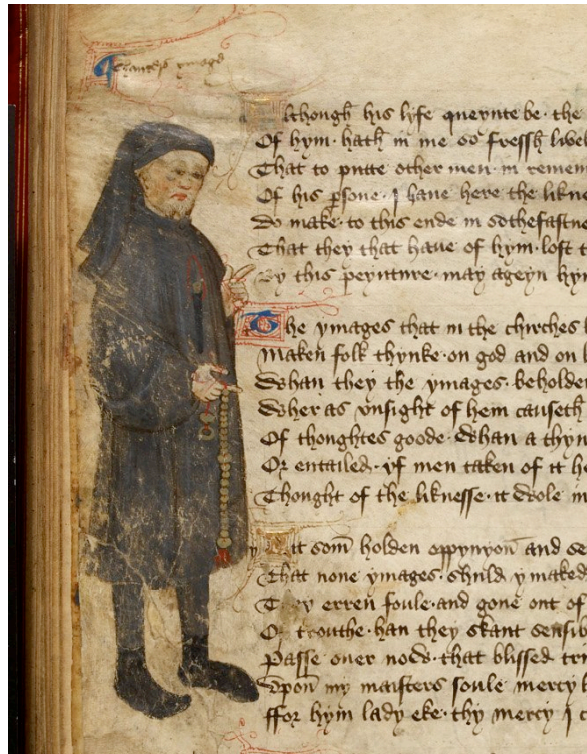 Chaucers ymage
Although his lyfe queynte be the
Of hym hath in me so fressh lyvel
That to putte other men in remem
Of his psone I haue here the likne
Do make to this ende in sothefastne
That they that haue of hym lost t
By this peynture may ageyn hym
The ymages that in the chirches
Maken folk thynke on god and on
Whan they the ymages beholden
Wher as vnsight of hem causeth
Of thoghtes goode Whan a thyn
Or entailed yf men taken of it he
Thought of the liknesse it wole in
Yit som holden oppynyon and se
That none ymages shuld y maked
They erren foule and gone out of
Of trouthe han they skant sensib
Passe ouer now that blissed tri
Vpon my maisters soule mercy
ffor hym lady eke thy mercy I c